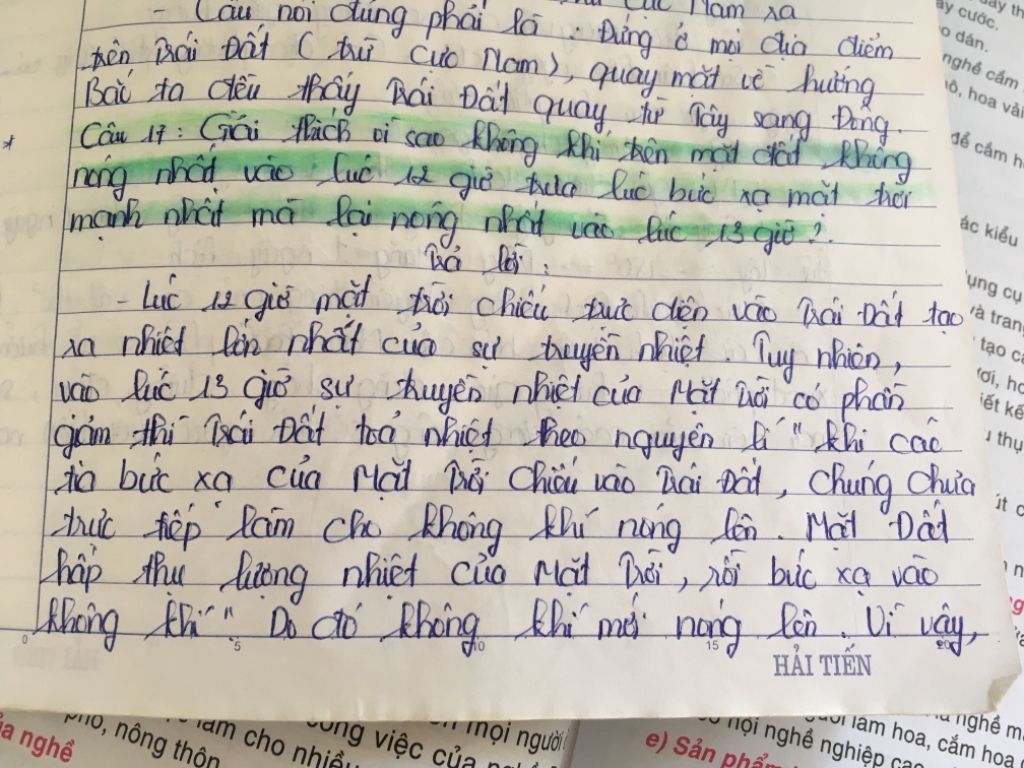 - Câu nói đúng phải là: Đứng ở mọi địa điểm
trên Trái Đất (trừ Cực Nam), quay mặt về hướng
Bắc ta đều thấy Trái Đất quay từ Tây sang Đông.
* Câu 17: Giải thích vì sao không khí trên mặt đất không
nóng nhất vào lúc 12 giờ trưa lúc bức xạ mặt trời
mạnh nhất mà lại nóng nhất vào lúc 13 giờ?
Trả lời:
- Lúc 12 giờ mặt trời chiếu trực diện vào Trái Đất tạo
ra nhiệt lớn nhất của sự truyền nhiệt. Tuy nhiên,
vào lúc 13 giờ sự truyền nhiệt của Mặt Trời có phần
giảm thì Trái Đất toả nhiệt theo nguyên lí "khi các
tia bức xạ của Mặt Trời chiếu vào Trái Đất, chúng chưa
trực tiếp làm cho không khí nóng lên. Mặt Đất
hấp thụ lượng nhiệt của Mặt Trời, rồi bức xạ vào
không khí" Do đó không khí mới nóng lên. Vì vậy,
0 5 10 15 20
HẢI TIẾN
dân.
nghề cắm
hoa
để cắm
ác kiểu
ụng cụ
và trang
tạo
iết kế
nghề
phố, nông thôn
làm cho nhiều
công việc của
mọi người
e) Sản phẩm
hội nghề nghiệp cao
làm hoa, cắm hoa